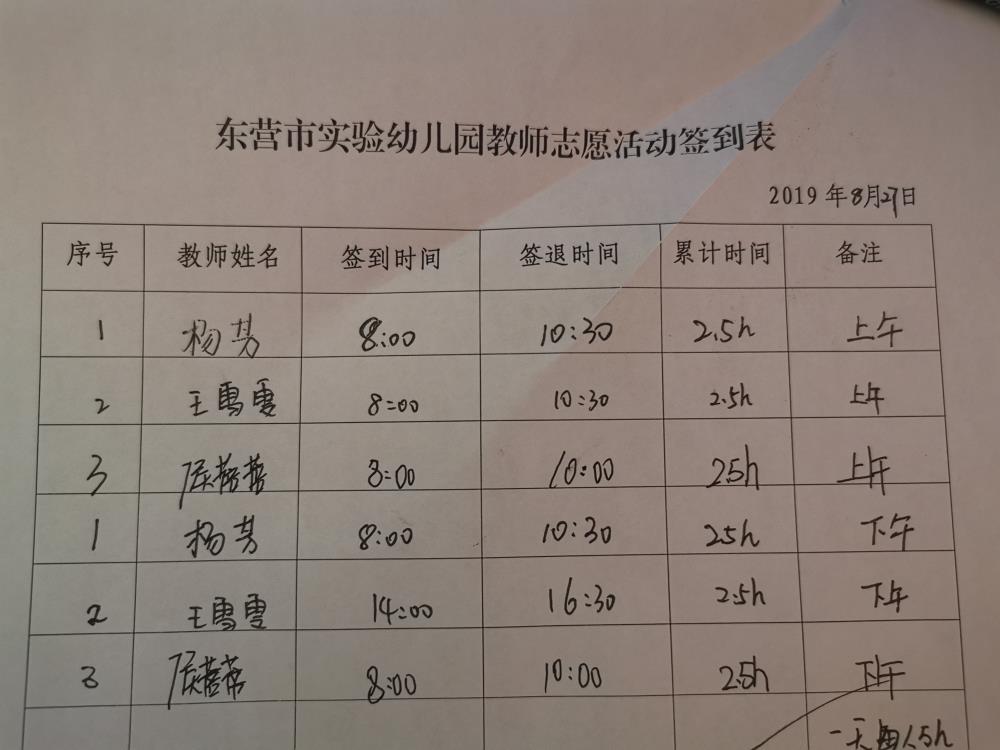 东营市实验幼儿园教师志愿活动签到表
2019 年8月27日
序号 教师姓名 签到时间 签退时间 累计时间 备注
1 杨芳 8:00 10:30 2.5h 上午
2 王雪雯 8:00 10:30 2.5h 上午
3 蓓蓓 8:00 10:00 25h 上午
1 杨芳 8:00 10:30 25h 下午
2 王雪雯 14:00 16:30 2.5h 下午
3 蓓蓓 8:00 10:00 2.5h 下午
一天每人5h